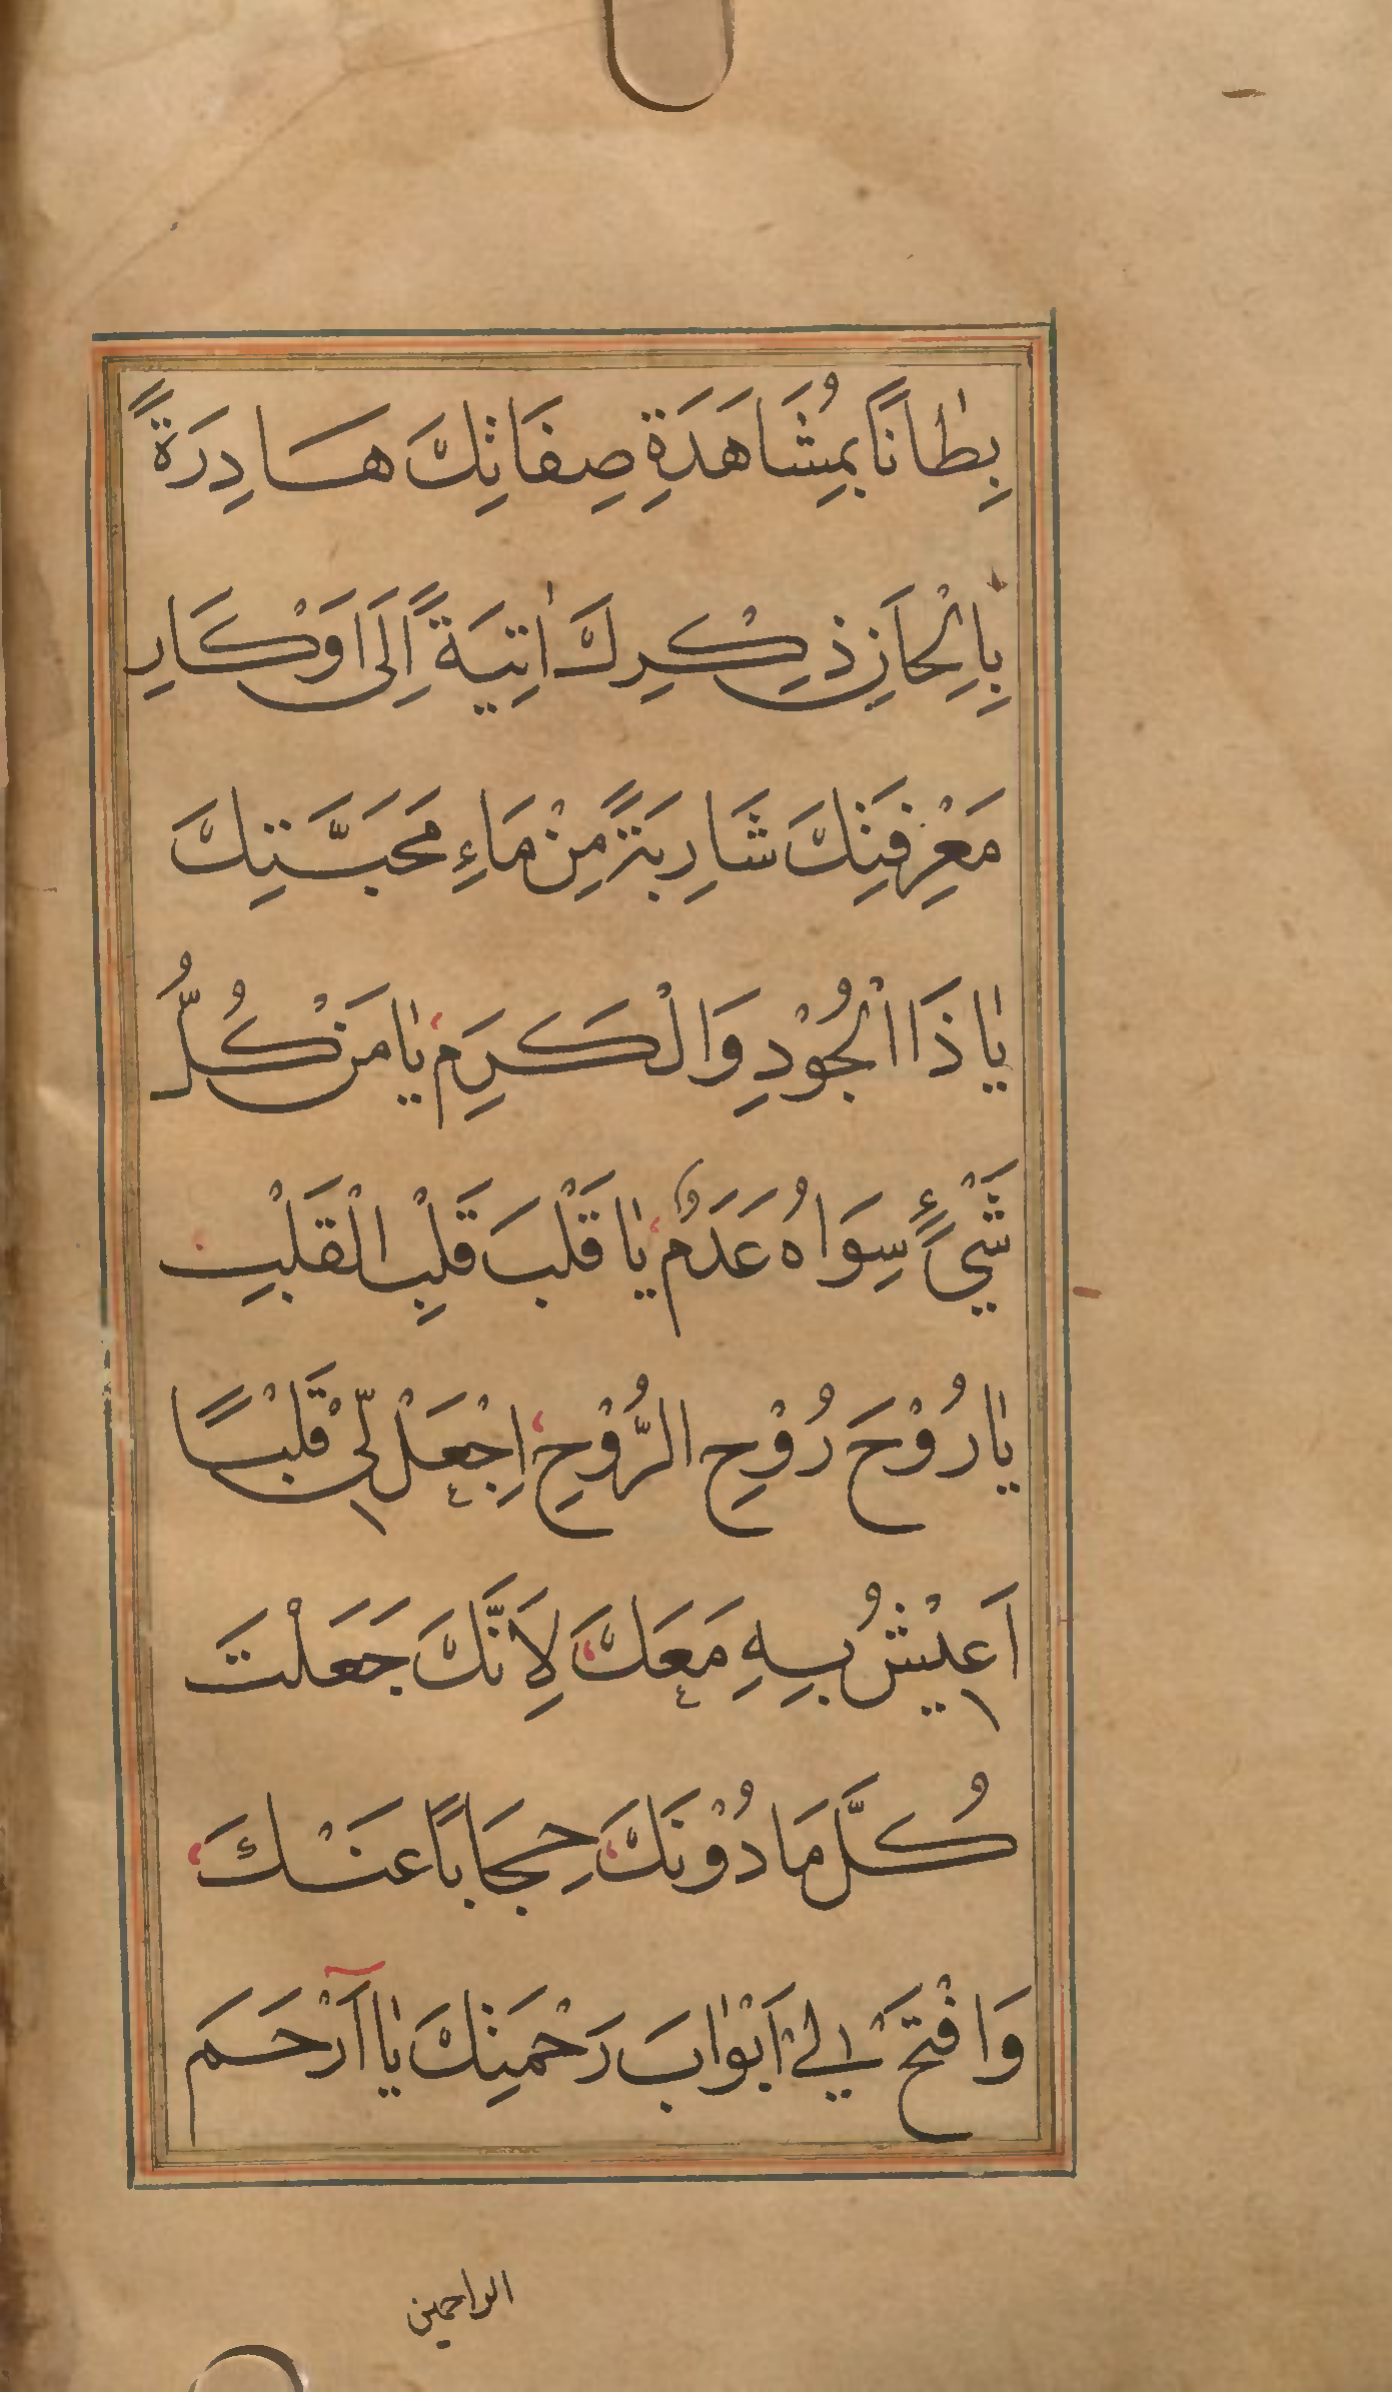 بِطٰانًا بِمُشَاهَدَةِ صِفَاتِكَ هَادِرَةً
بِاِلْحَانِ ذِكْرِكَ اٰتِيَةً اِلَى اَوْكَارِ
مَعْرِفَتِكَ شَارِبَةً مِنْ مَاءِ مَحَبَّتِكَ
يٰا ذَا الْجُوْدِ وَالْكَرَمِ يٰا مَنْ كُلُّ
شَيْءٍ سِوَاهُ عَدَمٌ يٰا قَلْبَ قَلْبِ الْقَلْبِ
يٰا رُوْحَ رُوْحِ الرُّوْحِ اِجْعَلْ لِّىْ قَلْبًا
اَعِيْشُ بِهِ مَعَكَ لِاَنَّكَ جَعَلْتَ
كُلَّ مَا دُوْنَكَ حِجَابًا عَنْكَ
وَافْتَحْ لِىْ اَبْوٰابَ رَحْمَتِكَ يٰا اَرْحَمَ
الراحمين